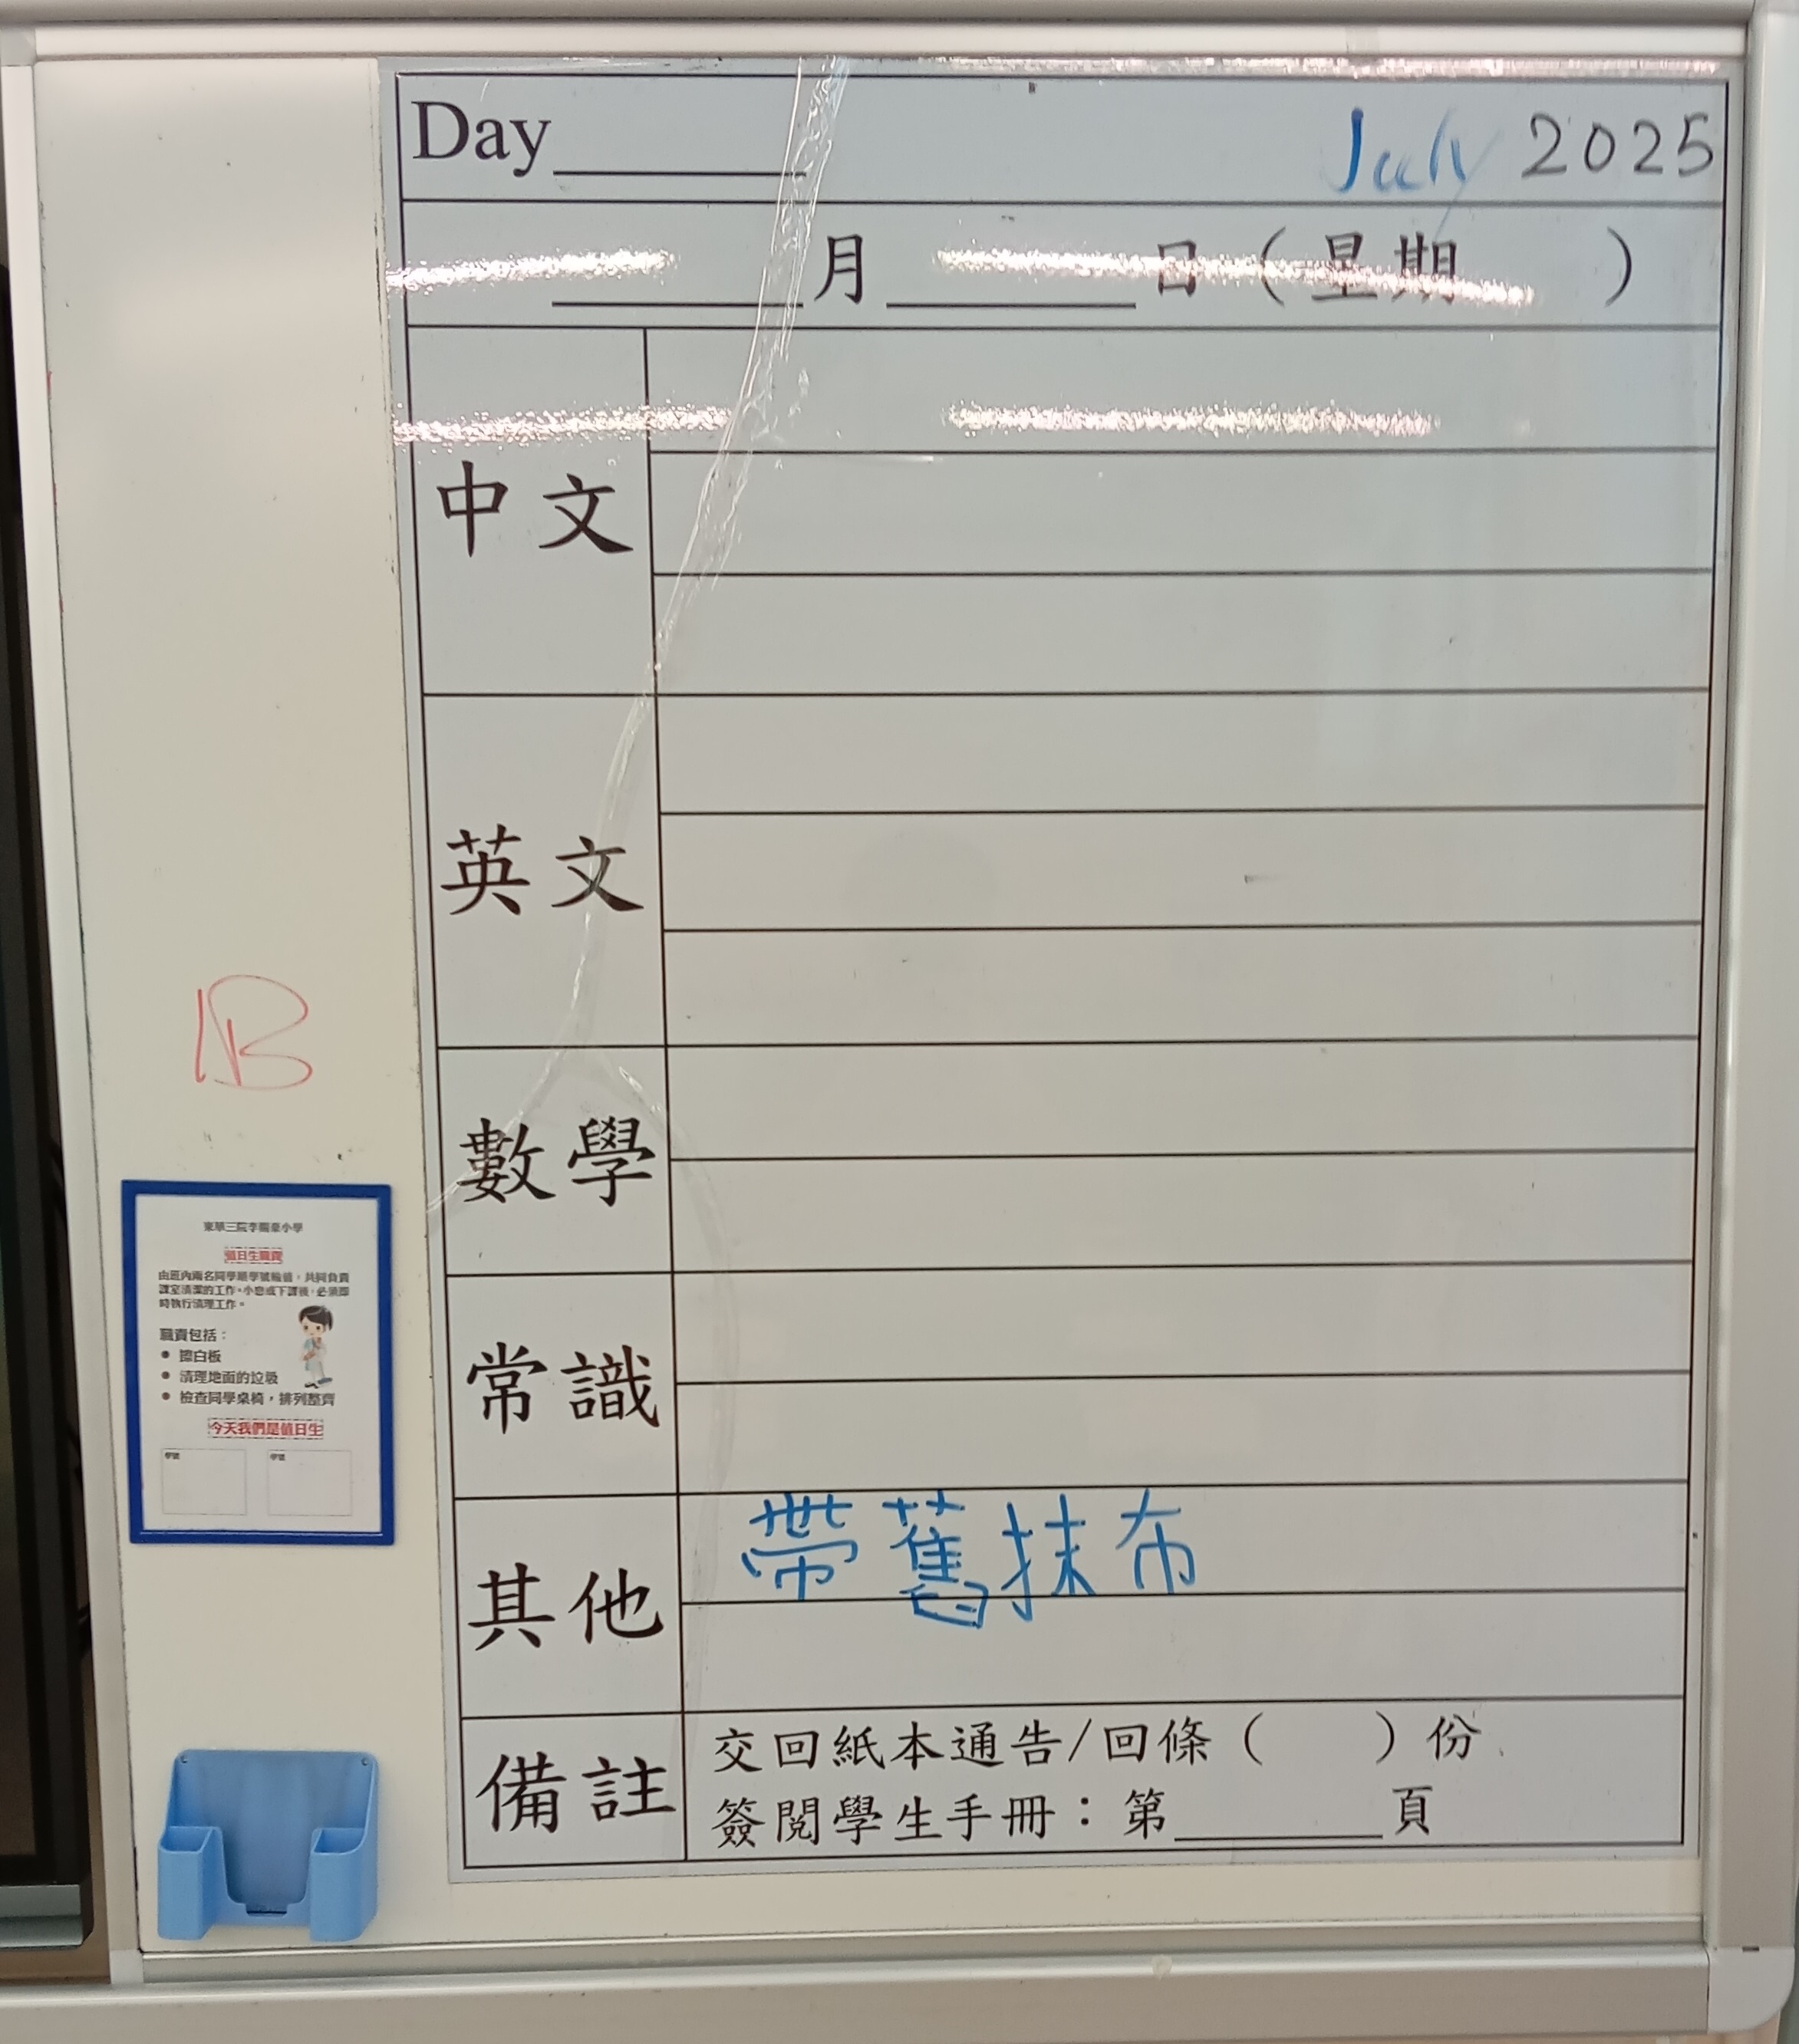 Day
July 2025
月 日 ( 星期 )
中文
英文
數學
常識
其他
帶舊抹布
備註
交回紙本通告/回條 ( ) 份
簽閱學生手冊：第 頁
1B
值日生職責
由班內兩名同學順學號輪值，共同負責
課室清潔的工作。小息或下課後，必須即
時執行清理工作。
職責包括：
● 擦白板
● 清理地面的垃圾
● 檢查同學桌椅，排列整齊
今天我們是值日生
學號 學號